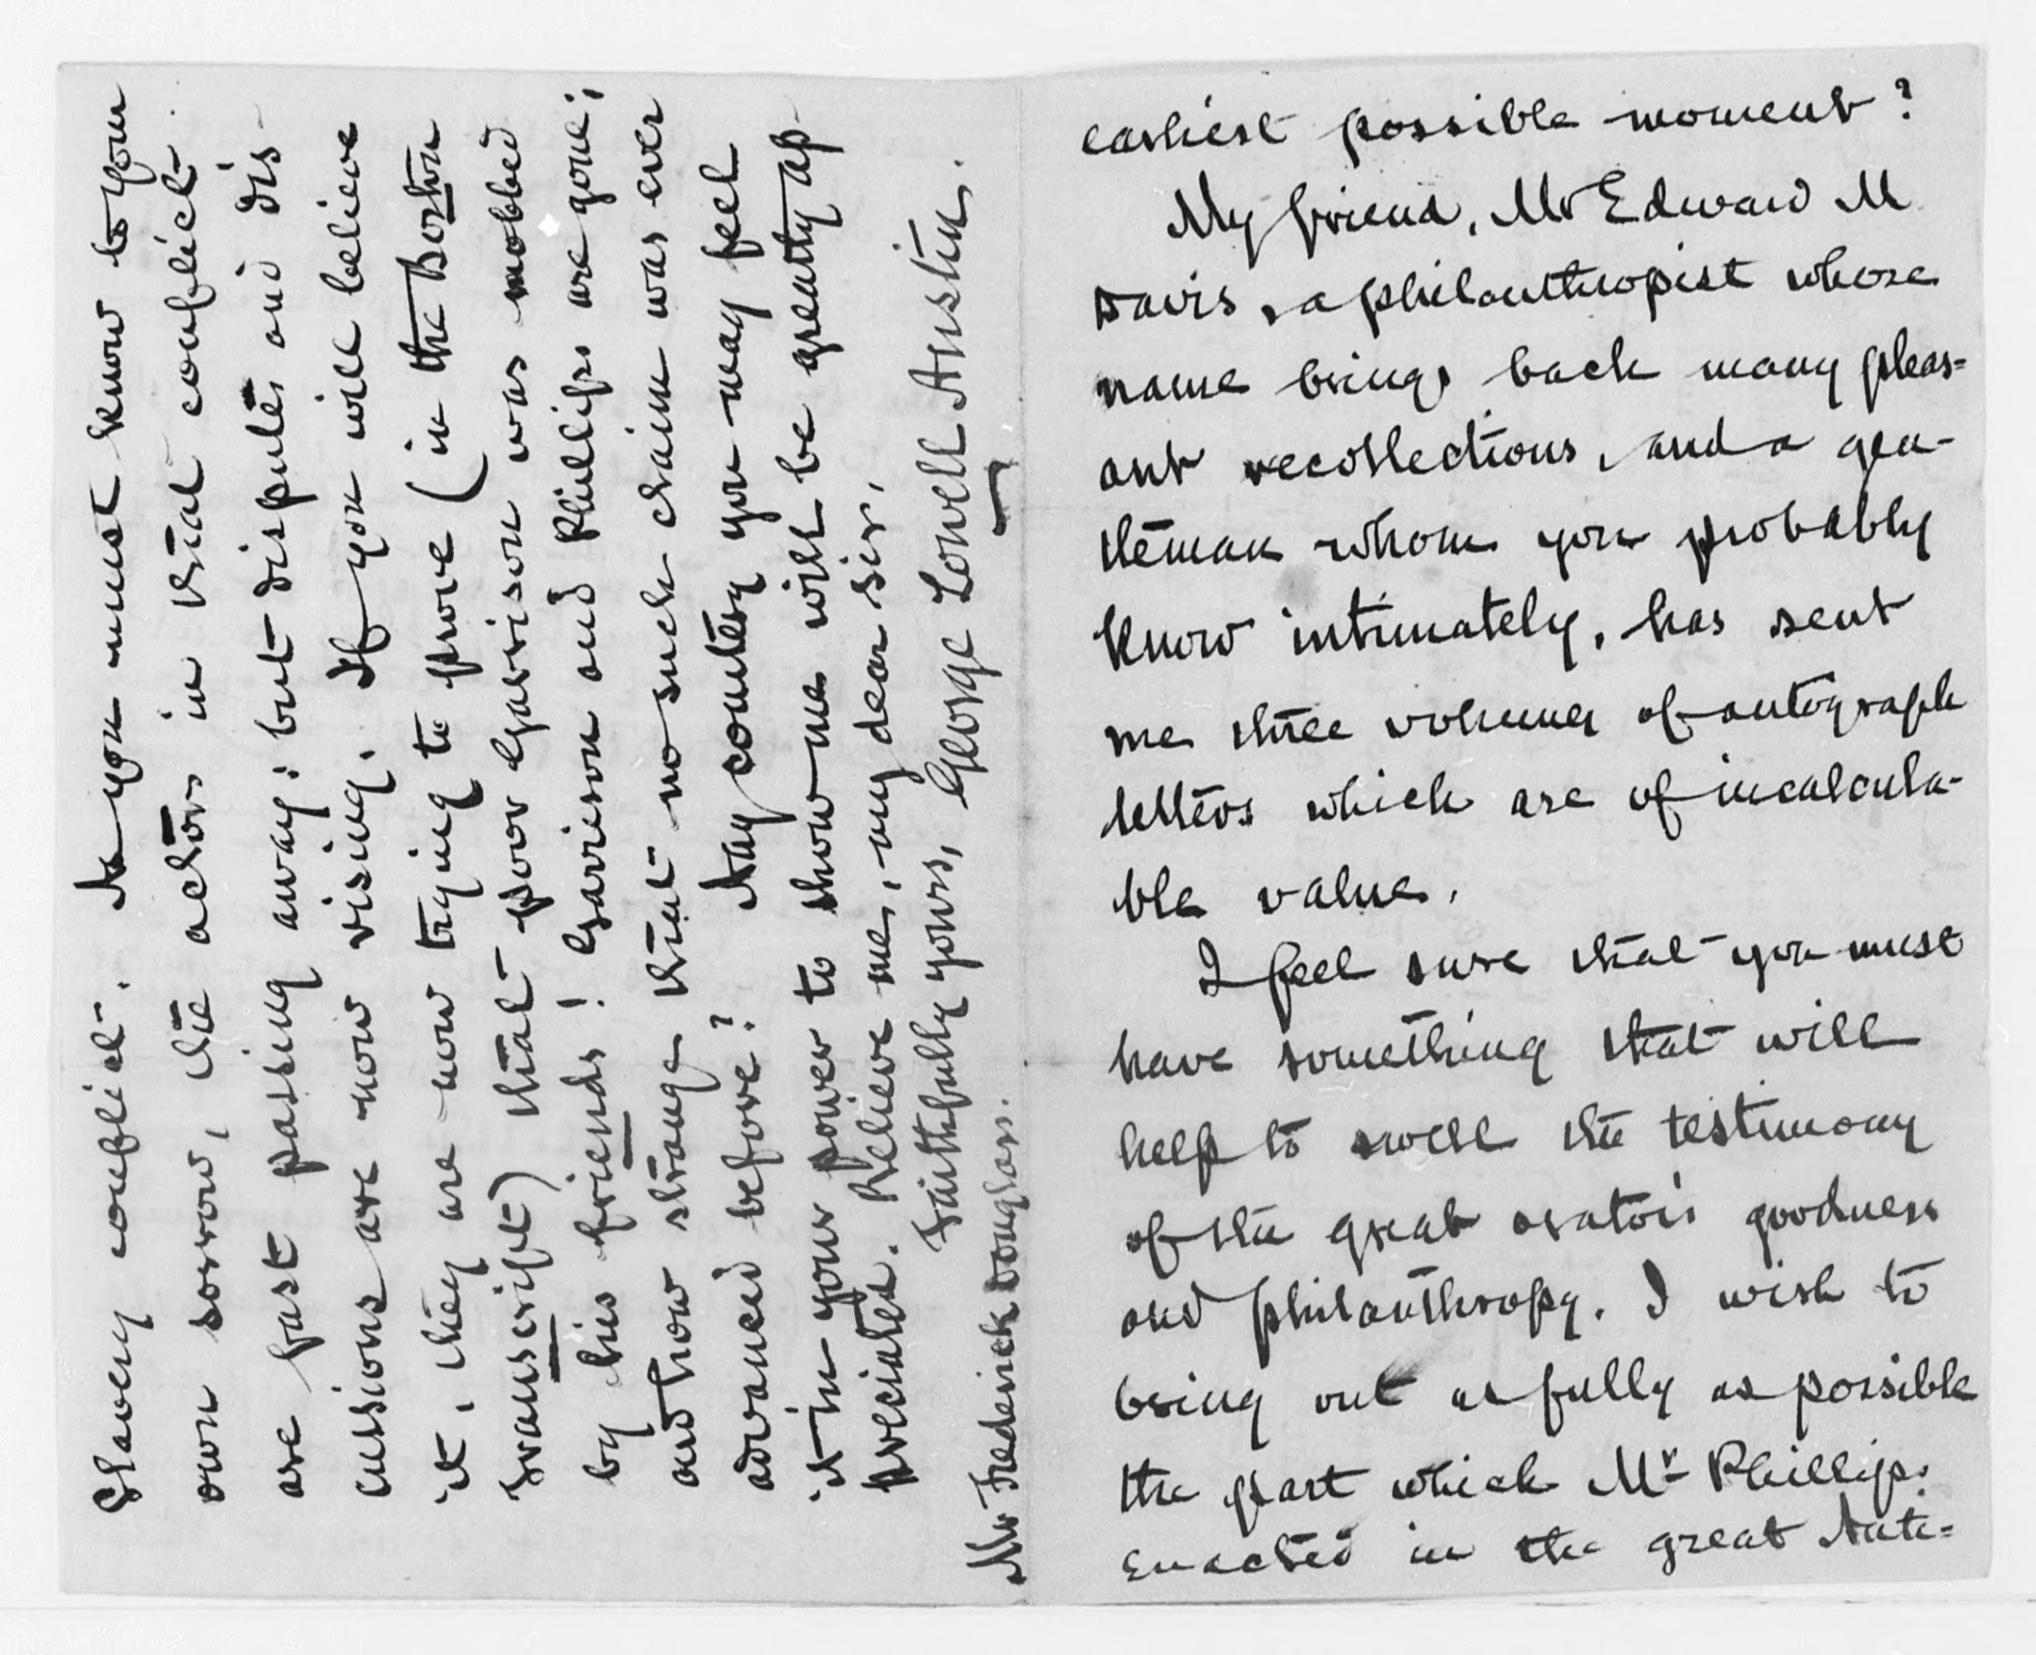 earliest possible moment?
My friend, Mr Edward M
Davis, a philanthropist whose
name brings back many pleas=
ant recollections, and a gen-
tleman whom you probably
know intimately, has sent
me three volumes of autograph
letters which are of incalcula-
ble value.
I feel sure that you must
have something that will
help to swell the testimony
of the great orator's goodness
and philanthropy. I wish to
bring out as fully as possible
the part which Mr Phillips
enacted in the great Anti=
Slavery conflict. As you must know to your
own sorrow, the actors in that conflict
are fast passing away: but disputes and dis-
cussions are now rising. If you will believe
it, they are now trying to prove (in the Boston
Transcript) that poor Garrison was mobbed
by his friends! Garrison and Phillips are gone;
and how strange that no such claim was ever
advanced before? Any courtesy you may feel
it in your power to show me will be greatly ap-
preciated. Believe me, my dear sir,
Faithfully yours, George Lowell Austin.
Mr Frederick Douglass.